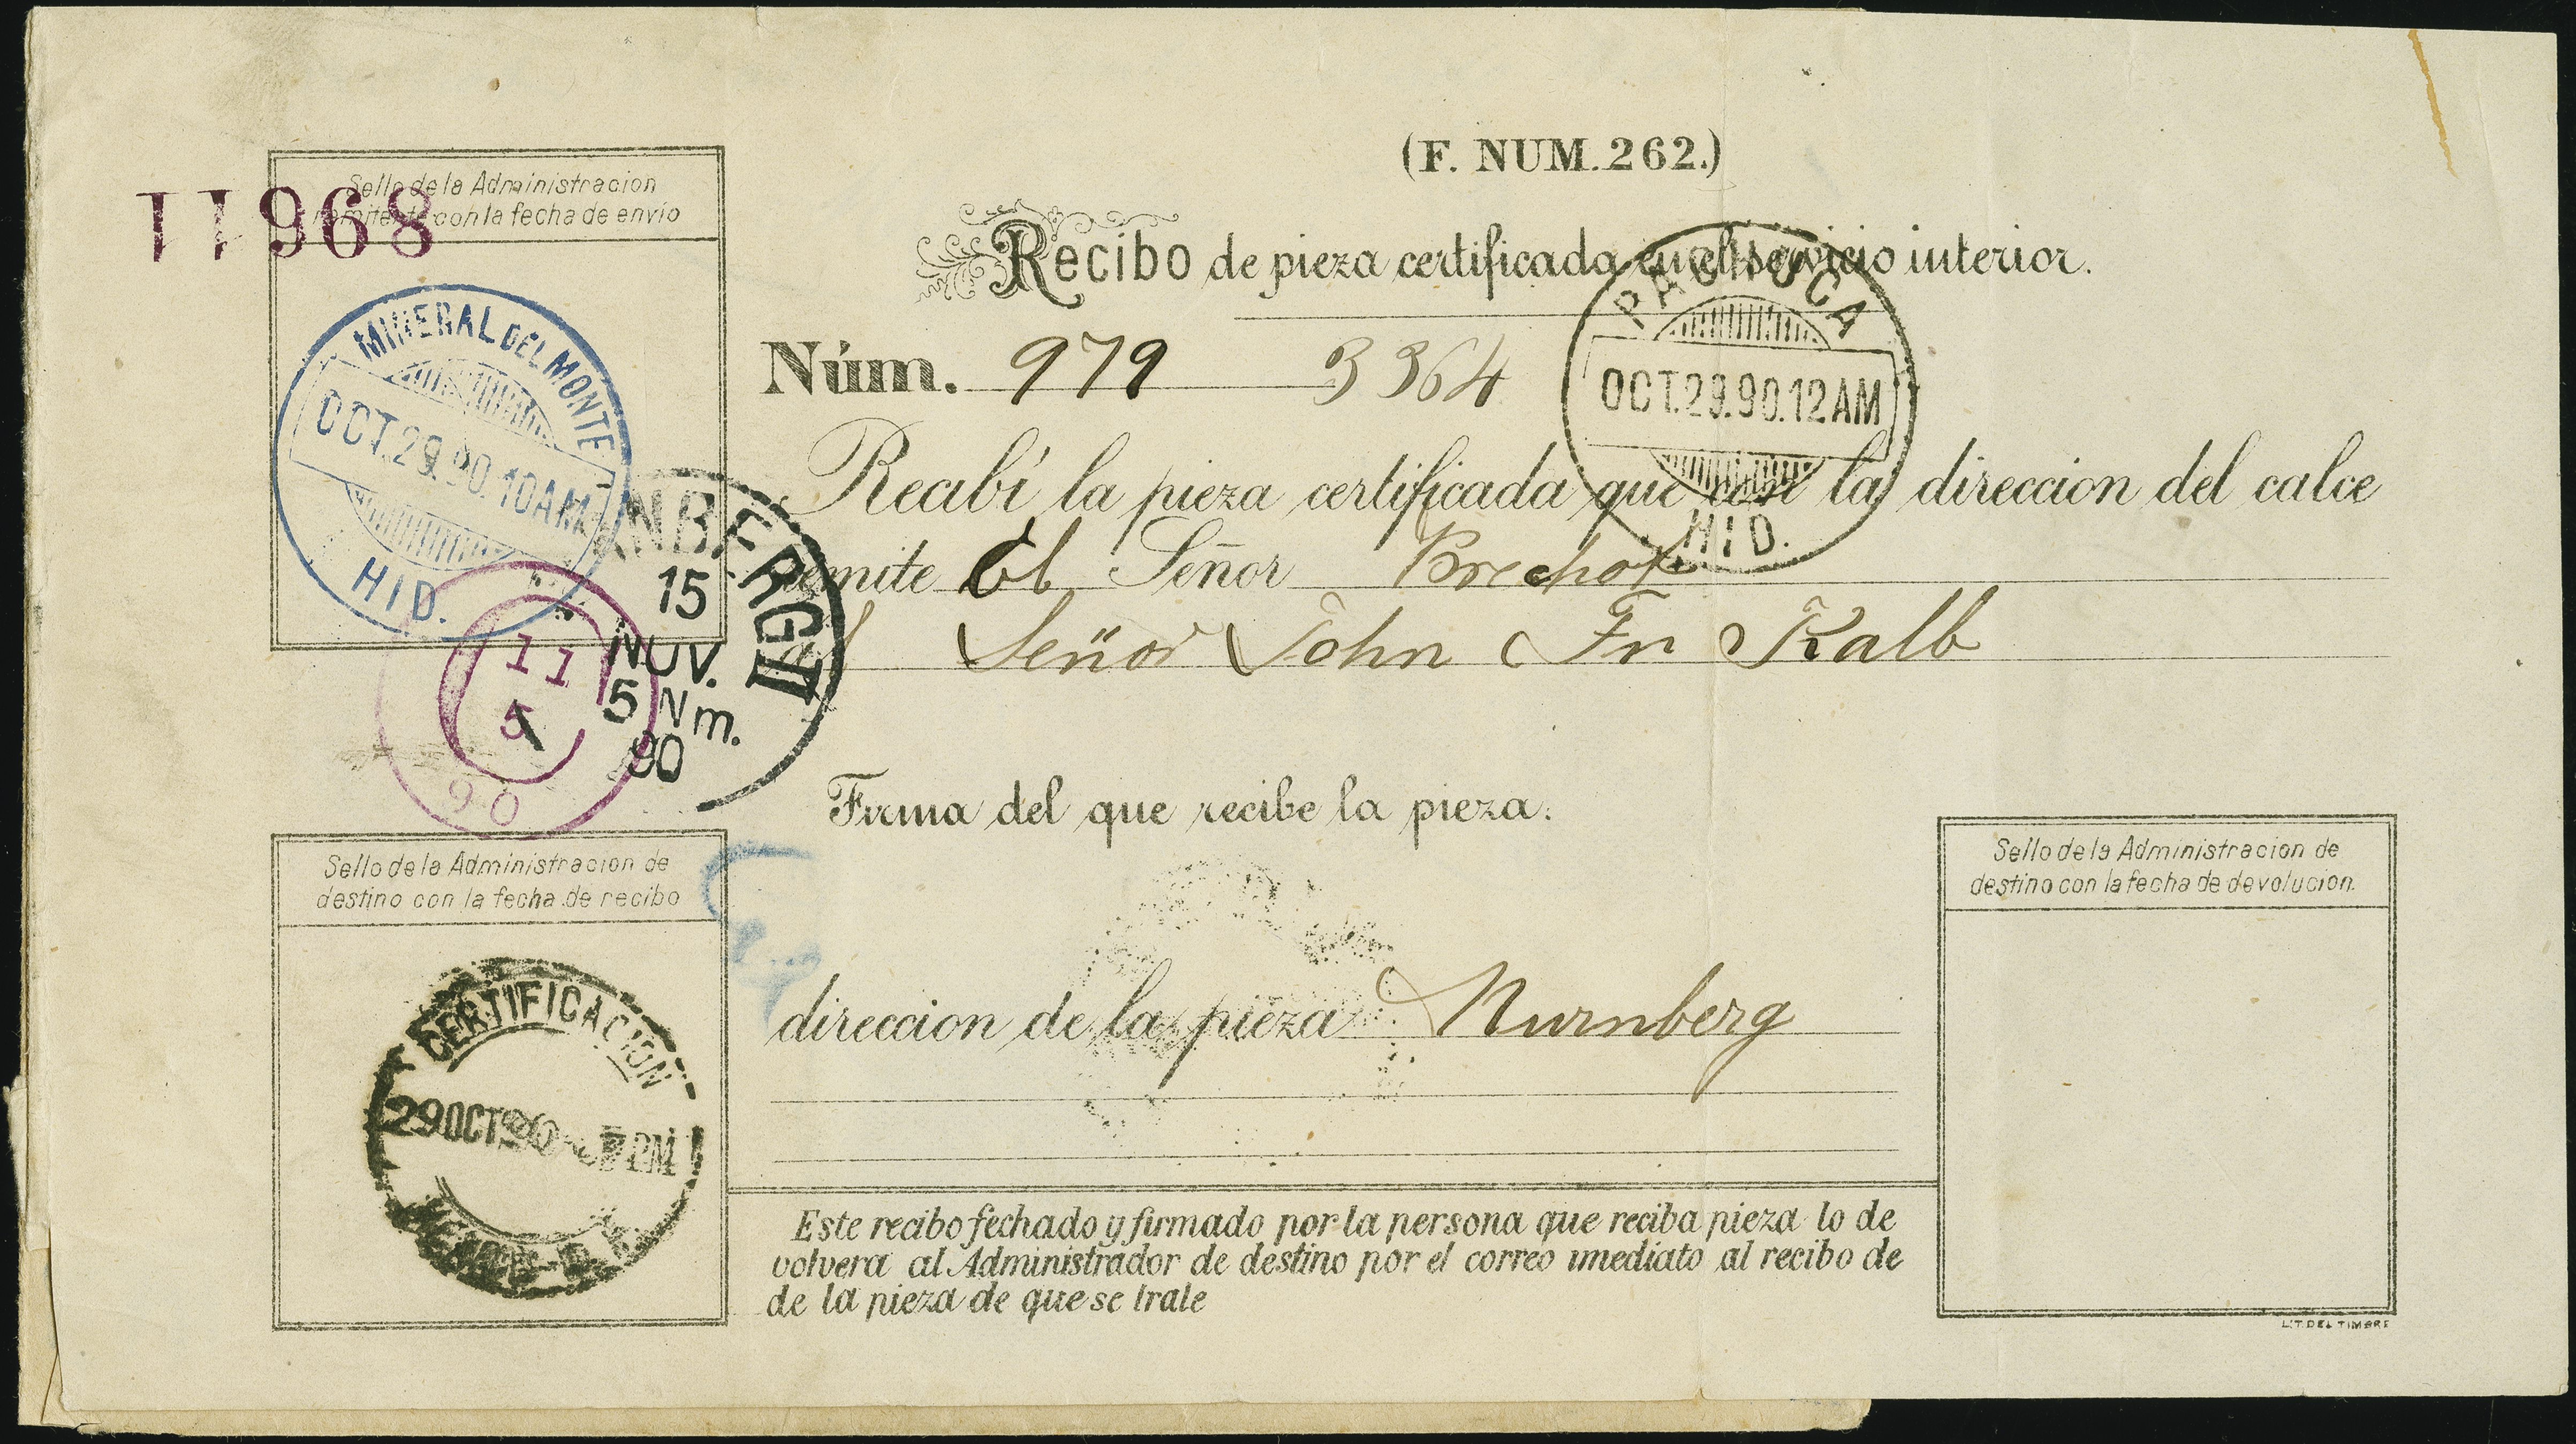 (F. NUM. 262.)
11968
Sello de la Administracion
remitente con la fecha de envio
Recibo de pieza certificada en el servicio interior.
MINERAL DEL MONTE
OCT.29.90.10AM
HID.
PACHUCA
OCT.29.90.12AM
HID.
Núm. 979 3364
Recibí la pieza certificada que con la direccion del calce
remite el Señor
Señor John Fr Kalb
NBERG II
15
NOV.
5 Nm.
90
11
5
90
Firma del que recibe la pieza:
Sello de la Administracion de
destino con la fecha de recibo
CERTIFICACION
29 OCT 90 PM
direccion de la pieza Nurnberg
Sello de la Administracion de
destino con la fecha de devolucion.
Este recibo fechado y firmado por la persona que reciba pieza lo de
volvera al Administrador de destino por el correo imediato al recibo de
de la pieza de que se trate
LIT. DEL TIMBRE